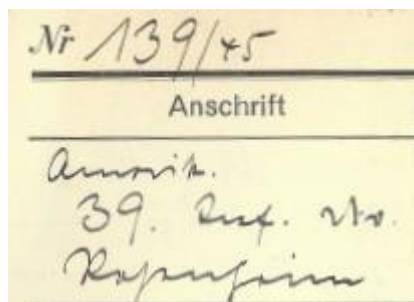 Nr 139/45
Anschrift
Amerik.
39. Inf. Div.
Rosenheim